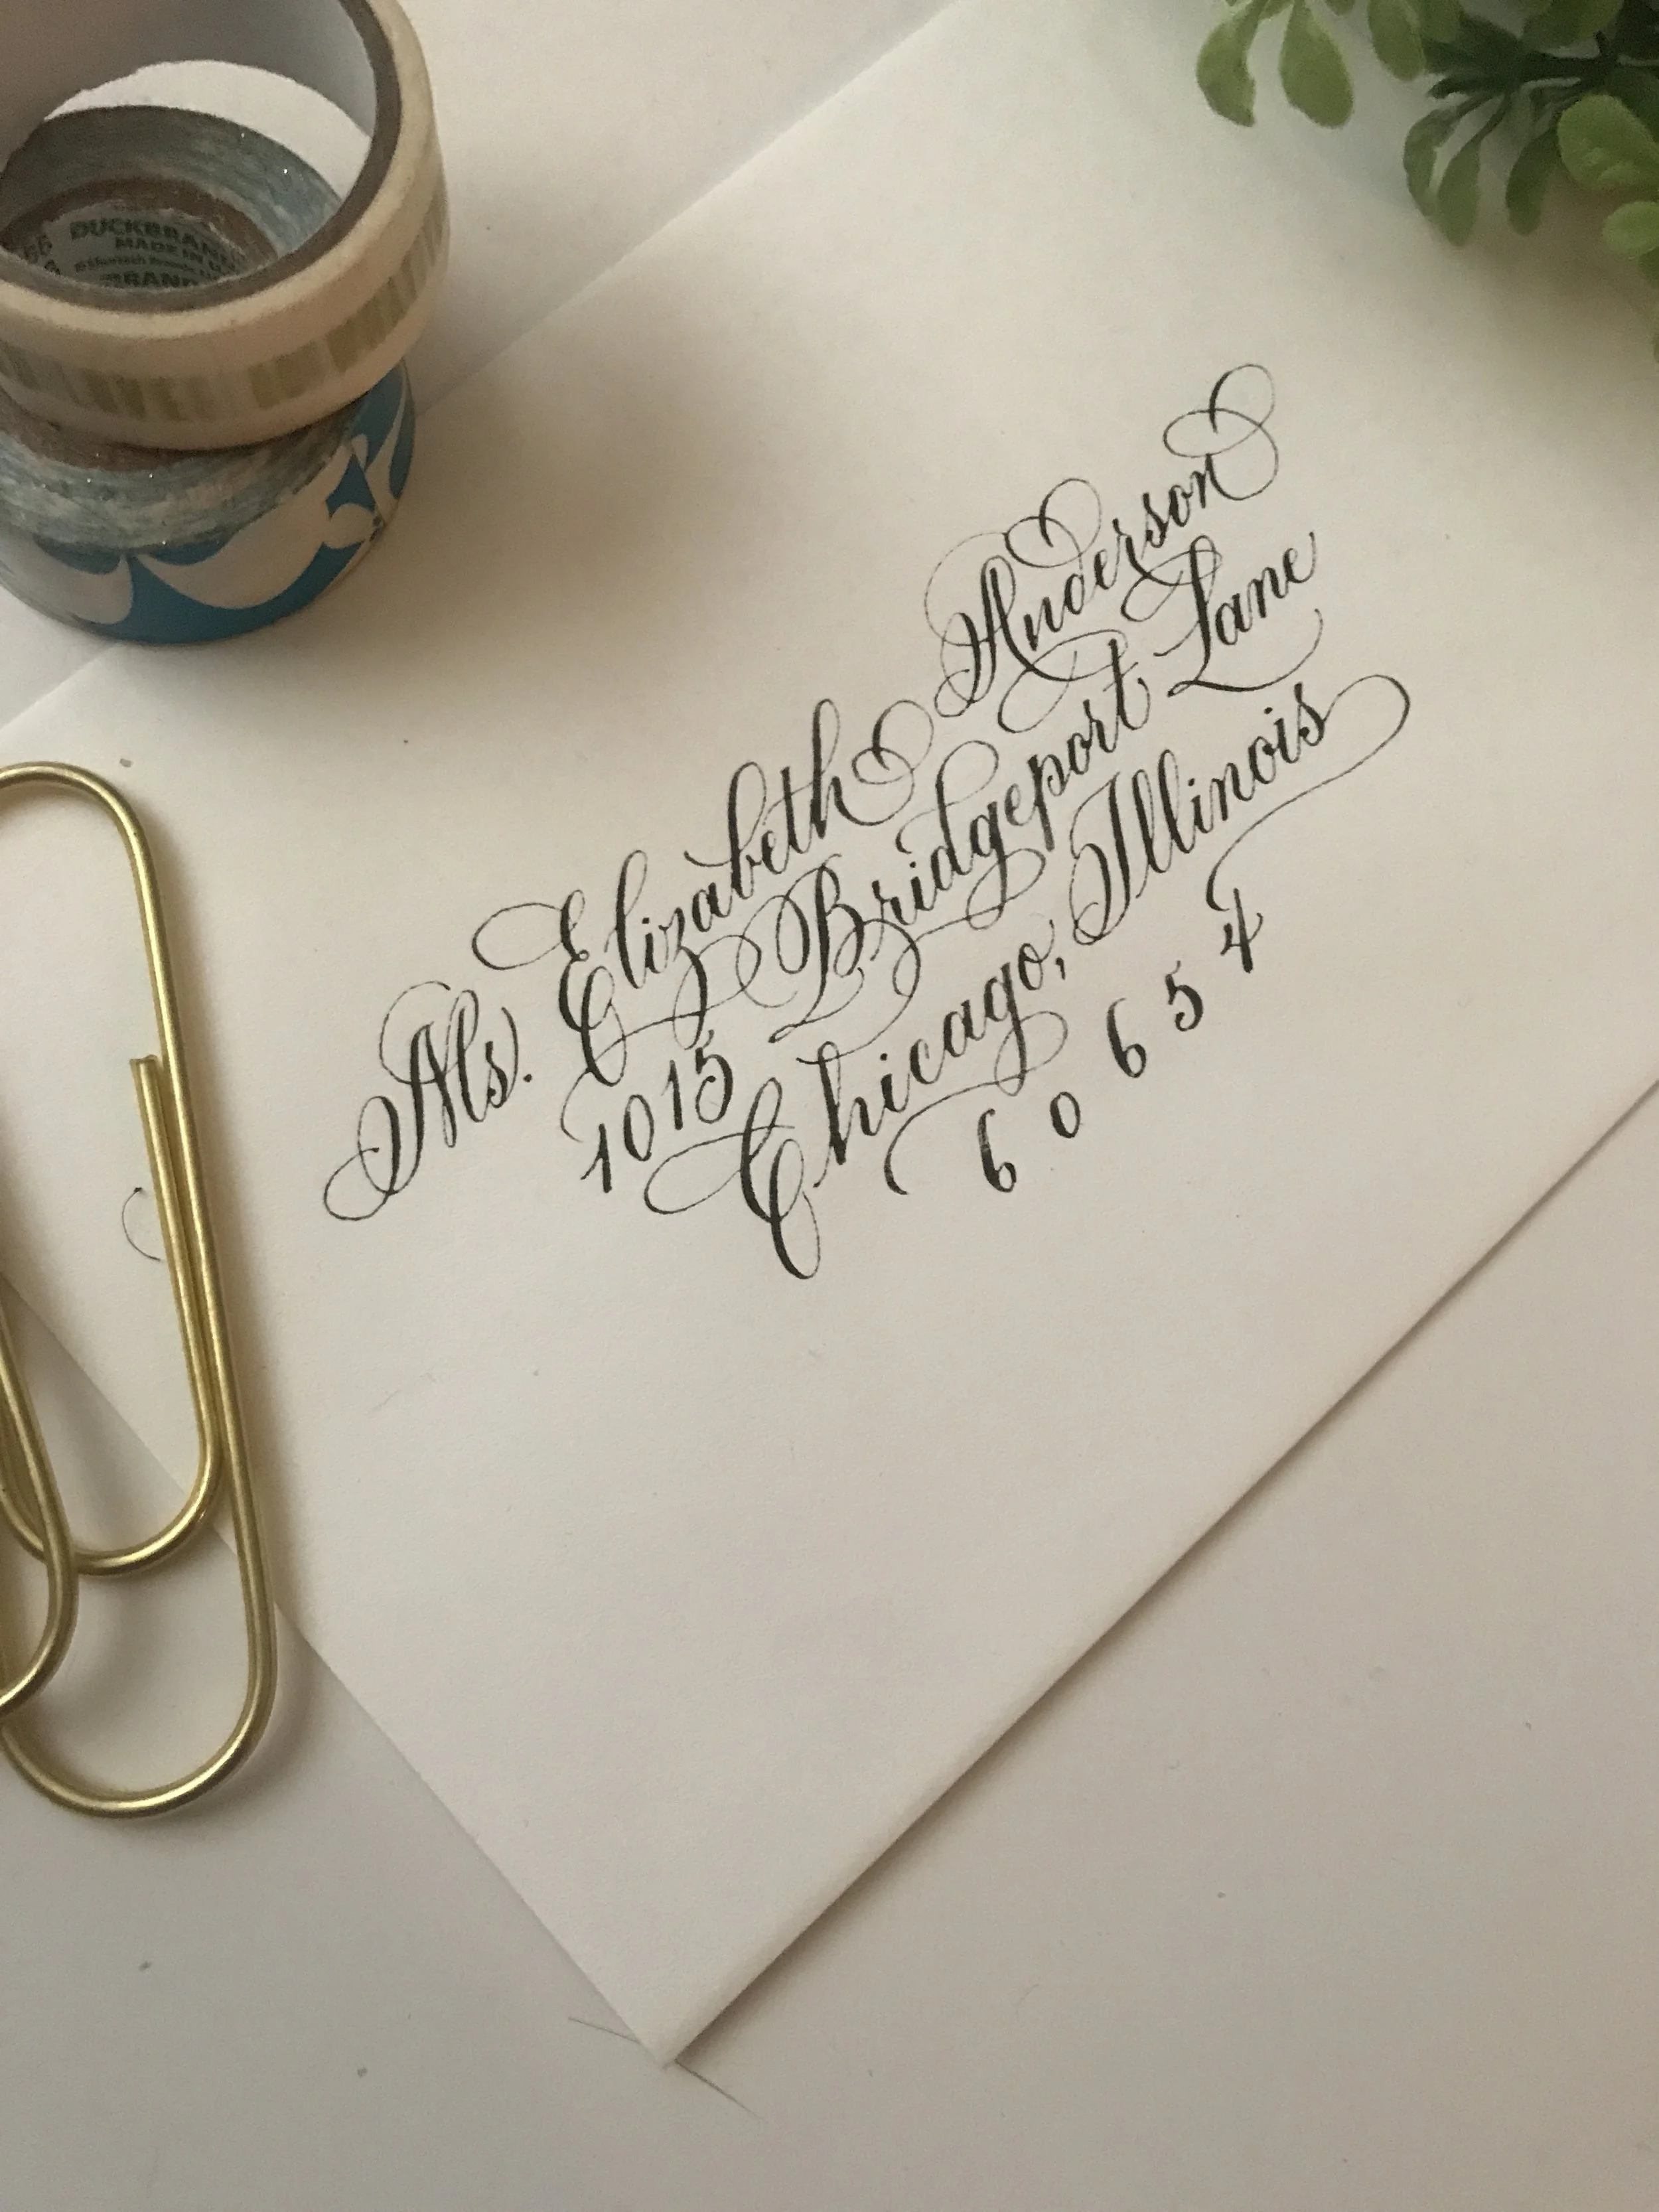 DUCKBRAND
MADE IN U
BRAND
Ms. Elizabeth Anderson
1015 Bridgeport Lane
Chicago, Illinois
6 0 6 5 4